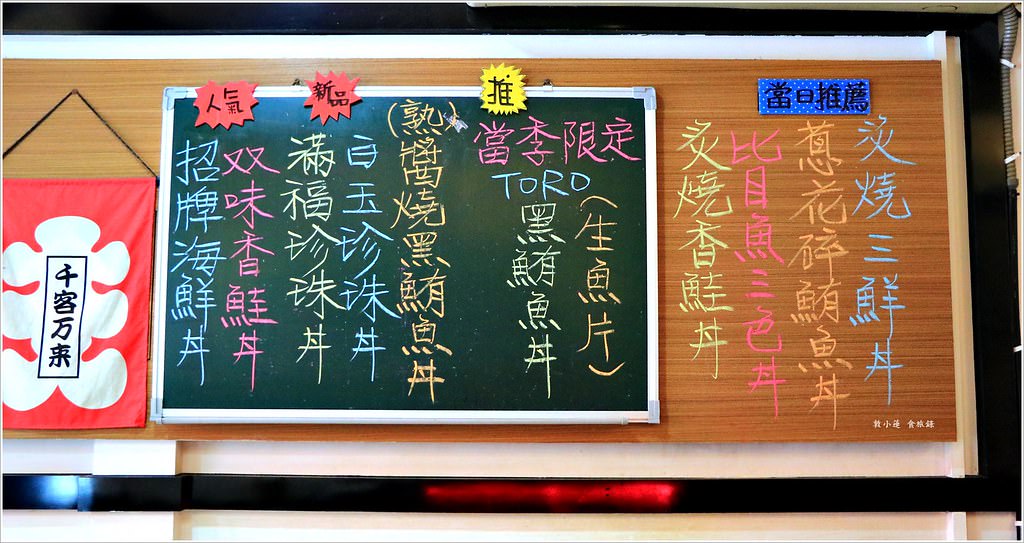 當日推薦
炙燒三鮮丼
蔥花碎鮪魚丼
比目魚三色丼
炙燒香鮭丼
推
當季限定
TORO
黑鮪魚丼
(生魚片)
(熟)醬燒黑鮪魚丼
新品
白玉珍珠丼
滿福珍珠丼
人氣
双味香鮭丼
招牌海鮮丼
千客万来
敦小蓮 食旅錄